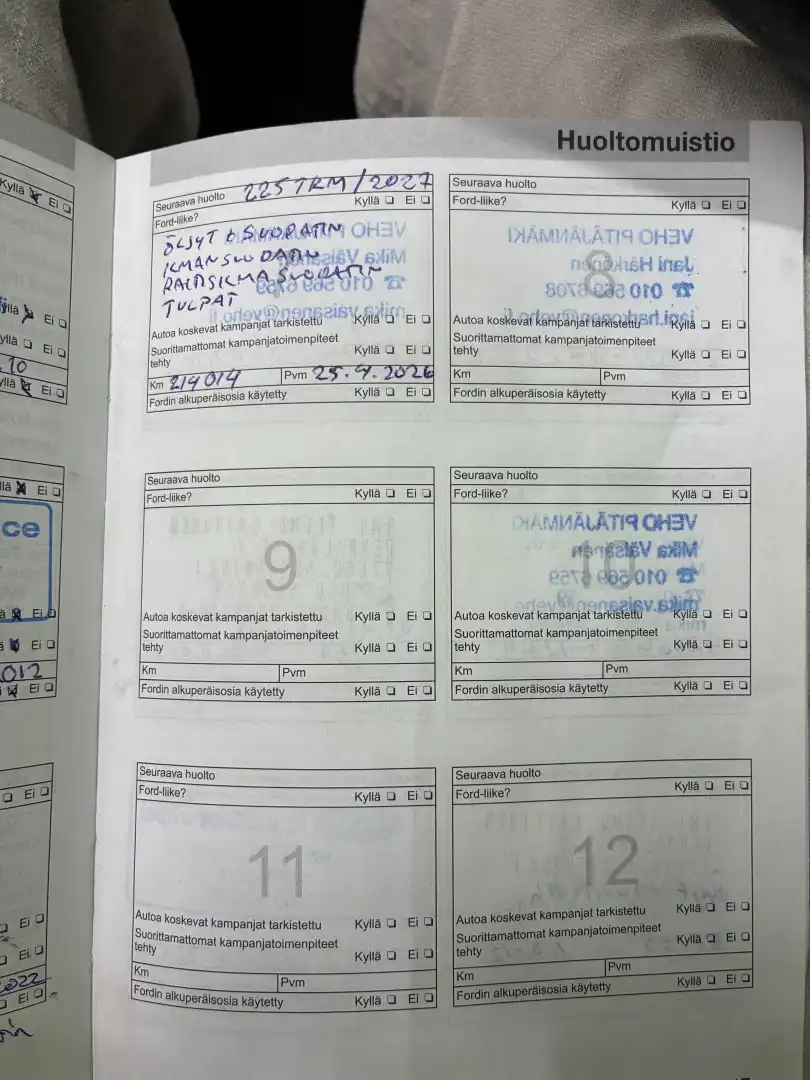 Huoltomuistio
Seuraava huolto 225TKM/2027
Ford-liike? Kyllä ❏ Ei ❏
ÖLJYT + SUODATIN
ILMANSUODATIN
RAITISILMASUODATIN
TULPAT
Autoa koskevat kampanjat tarkistettu Kyllä ❏ Ei ❏
Suorittamattomat kampanjatoimenpiteet
tehty Kyllä ❏ Ei ❏
Km 214014 Pvm 25.4.2026
Fordin alkuperäisosia käytetty Kyllä ❏ Ei ❏
Seuraava huolto
Ford-liike? Kyllä ❏ Ei ❏
8
VEHO PITÄJÄNMÄKI
Jani Härkönen
☎ 010 569 6708
jani.harkonen@veho.fi
Autoa koskevat kampanjat tarkistettu Kyllä ❏ Ei ❏
Suorittamattomat kampanjatoimenpiteet
tehty Kyllä ❏ Ei ❏
Km Pvm
Fordin alkuperäisosia käytetty Kyllä ❏ Ei ❏
Seuraava huolto
Ford-liike? Kyllä ❏ Ei ❏
9
Autoa koskevat kampanjat tarkistettu Kyllä ❏ Ei ❏
Suorittamattomat kampanjatoimenpiteet
tehty Kyllä ❏ Ei ❏
Km Pvm
Fordin alkuperäisosia käytetty Kyllä ❏ Ei ❏
Seuraava huolto
Ford-liike? Kyllä ❏ Ei ❏
10
VEHO PITÄJÄNMÄKI
Mika Väisänen
☎ 010 569 6759
mika.vaisanen@veho.fi
Autoa koskevat kampanjat tarkistettu Kyllä ❏ Ei ❏
Suorittamattomat kampanjatoimenpiteet
tehty Kyllä ❏ Ei ❏
Km Pvm
Fordin alkuperäisosia käytetty Kyllä ❏ Ei ❏
Seuraava huolto
Ford-liike? Kyllä ❏ Ei ❏
11
Autoa koskevat kampanjat tarkistettu Kyllä ❏ Ei ❏
Suorittamattomat kampanjatoimenpiteet
tehty Kyllä ❏ Ei ❏
Km Pvm
Fordin alkuperäisosia käytetty Kyllä ❏ Ei ❏
Seuraava huolto
Ford-liike? Kyllä ❏ Ei ❏
12
Autoa koskevat kampanjat tarkistettu Kyllä ❏ Ei ❏
Suorittamattomat kampanjatoimenpiteet
tehty Kyllä ❏ Ei ❏
Km Pvm
Fordin alkuperäisosia käytetty Kyllä ❏ Ei ❏